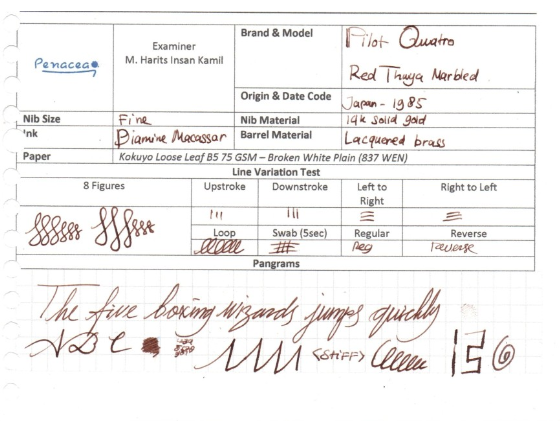 Penacea
Examiner
M. Harits Insan Kamil
Brand & Model
Pilot Quatro
Red Thuya Marbled
Origin & Date Code
Japan - 1985
Nib Size
Fine
Nib Material
14k solid gold
Ink
Diamine Macassar
Barrel Material
Lacquered brass
Paper
Kokuyo Loose Leaf B5 75 GSM – Broken White Plain (837 WEN)
Line Variation Test
8 Figures
Upstroke
Downstroke
Left to
Right
Right to Left
Loop
Swab (5sec)
Regular
Reverse
Reg
reverse
Pangrams
The five boxing wizards jumps quickly
<STIFF>